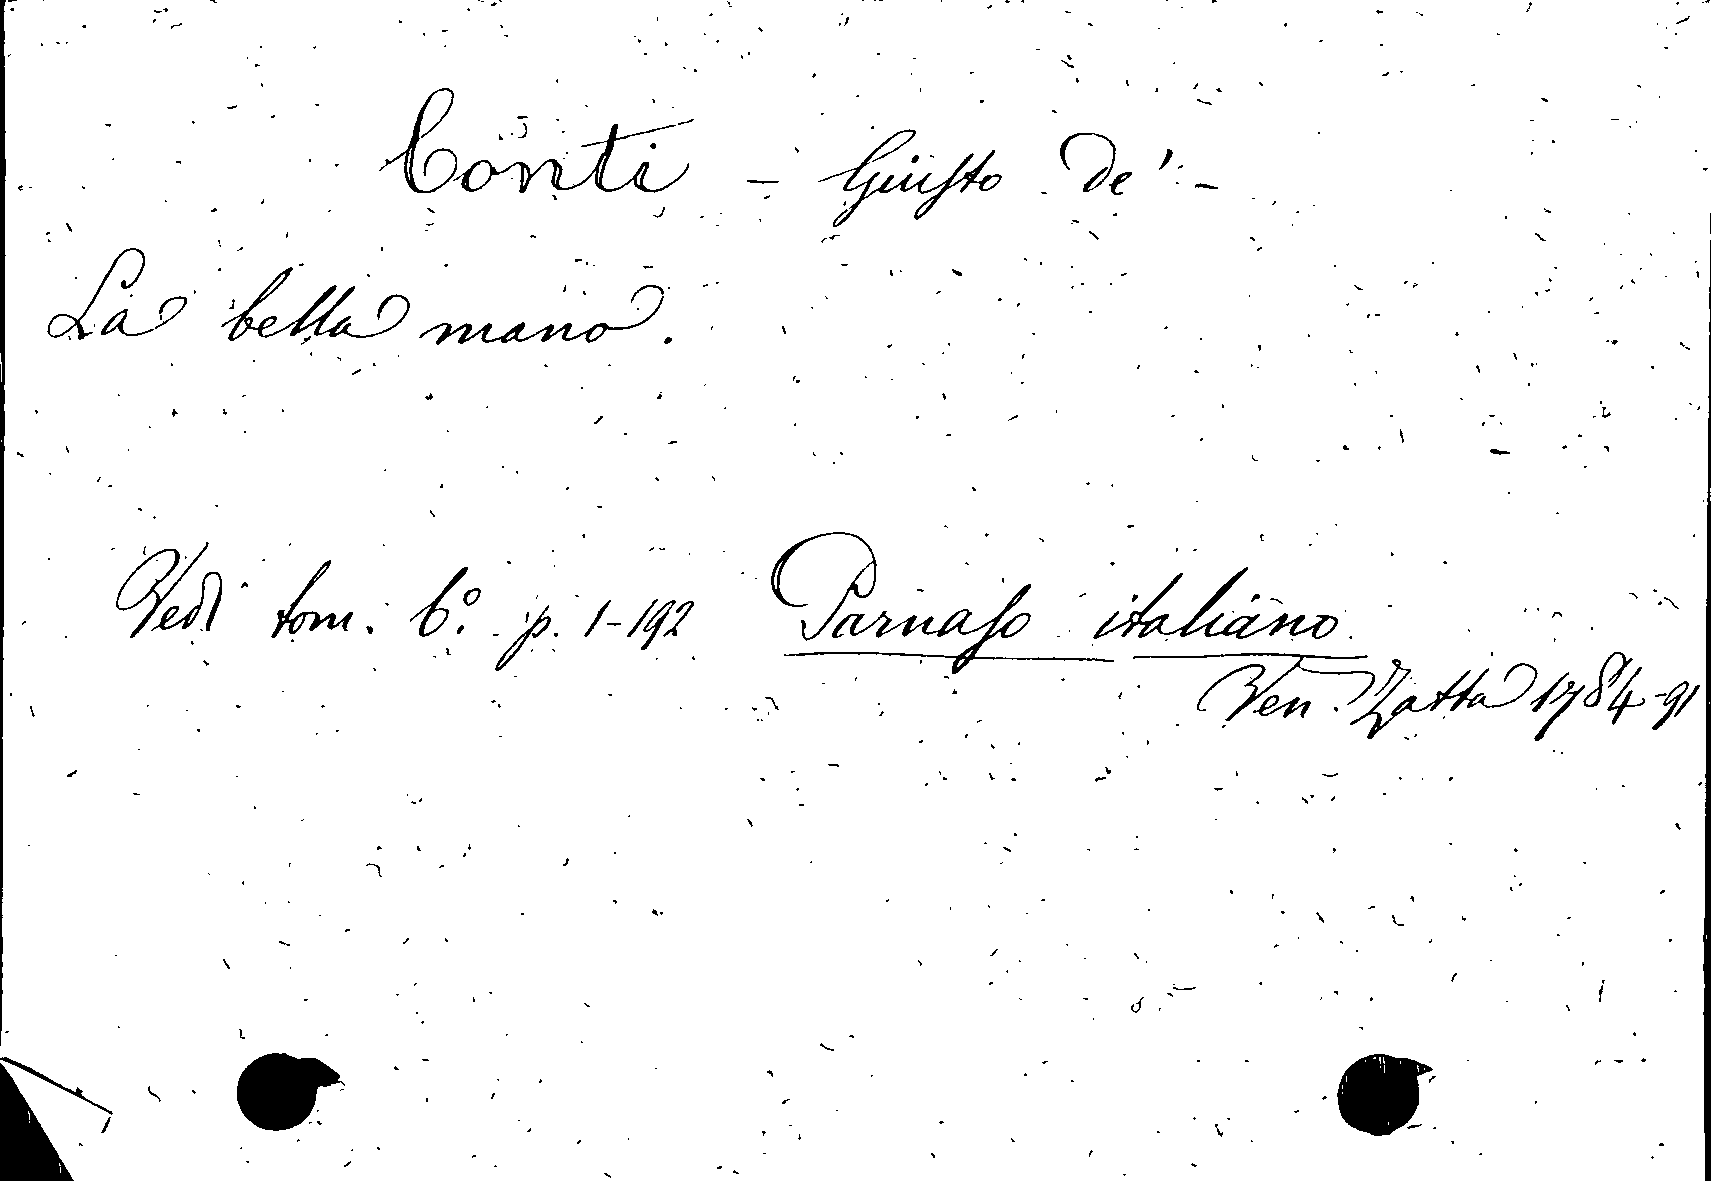 Conti - Giusto de' -
La bella mano.
Vedi tom. 6.° p. 1-192 Parnaso italiano
Ven. Zatta 1784-91